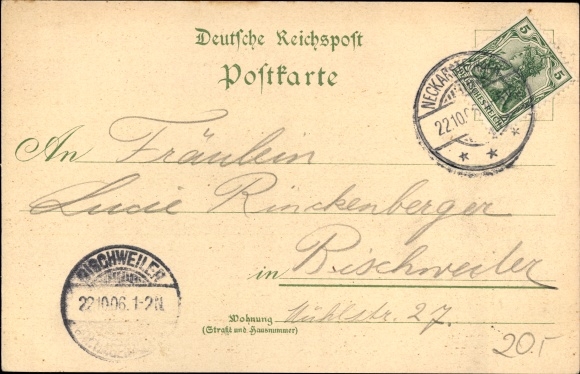 Deutsche Reichspost
Postkarte
5 5
DEUTSCHES REICH
NECKAR
22.10.0
An Fräulein
Lucie Rinckenberger
in Bischweiler
BISCHWEILER
22.10.06. 1-2N.
Wohnung
(Straße und Hausnummer)
Mühlstr. 27.
20.-